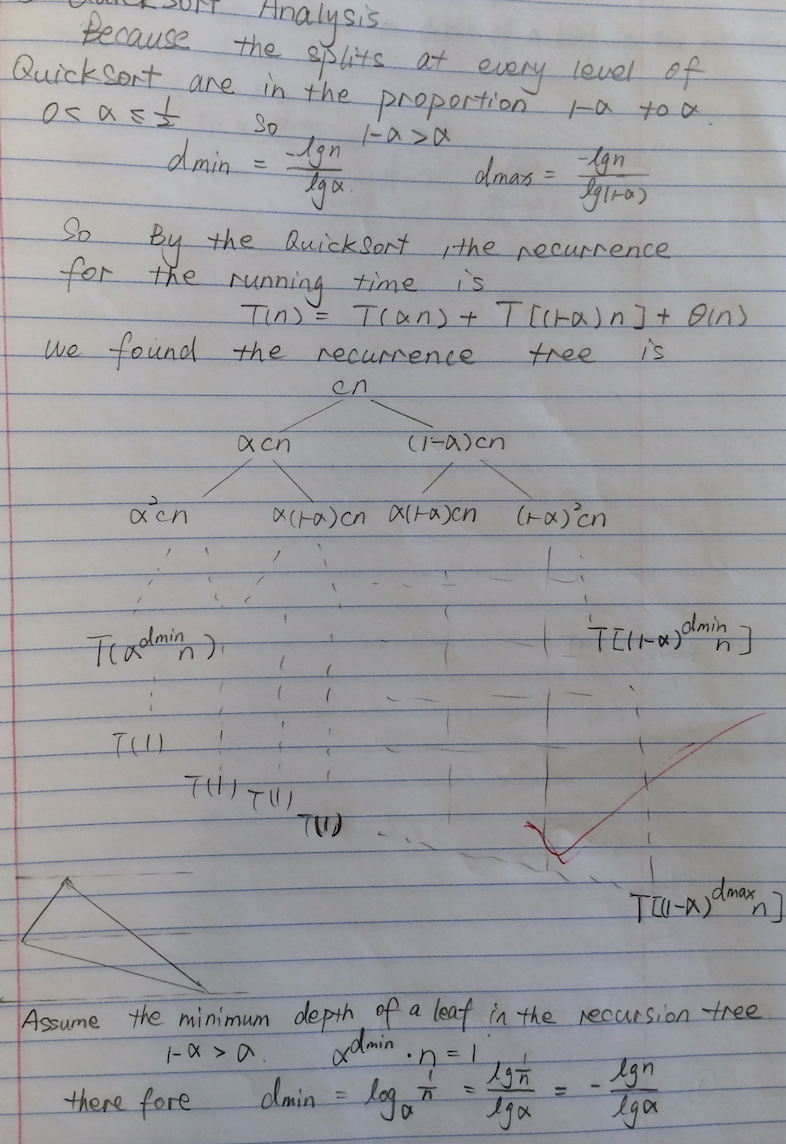 QuickSort Analysis.
Because the splits at every level of
QuickSort are in the proportion 1-α to α.
0 < α ≤ 1/2 so 1-α > α
dmin = -lgn / lgα. dmax = -lgn / lg(1-α)
So By the QuickSort, the recurrence
for the running time is
T(n) = T(αn) + T[(1-α)n] + Θ(n)
we found the recurrence tree is
cn
αcn (1-α)cn
α²cn α(1-α)cn α(1-α)cn (1-α)²cn
T(α^dmin n) T[(1-α)^dmin n]
T(1)
T(1) T(1)
T(1)
T[(1-α)^dmax n]
Assume the minimum depth of a leaf in the recursion tree
1-α > α. α^dmin · n = 1
there fore dmin = log_α 1/n = lg 1/n / lgα = - lgn / lgα